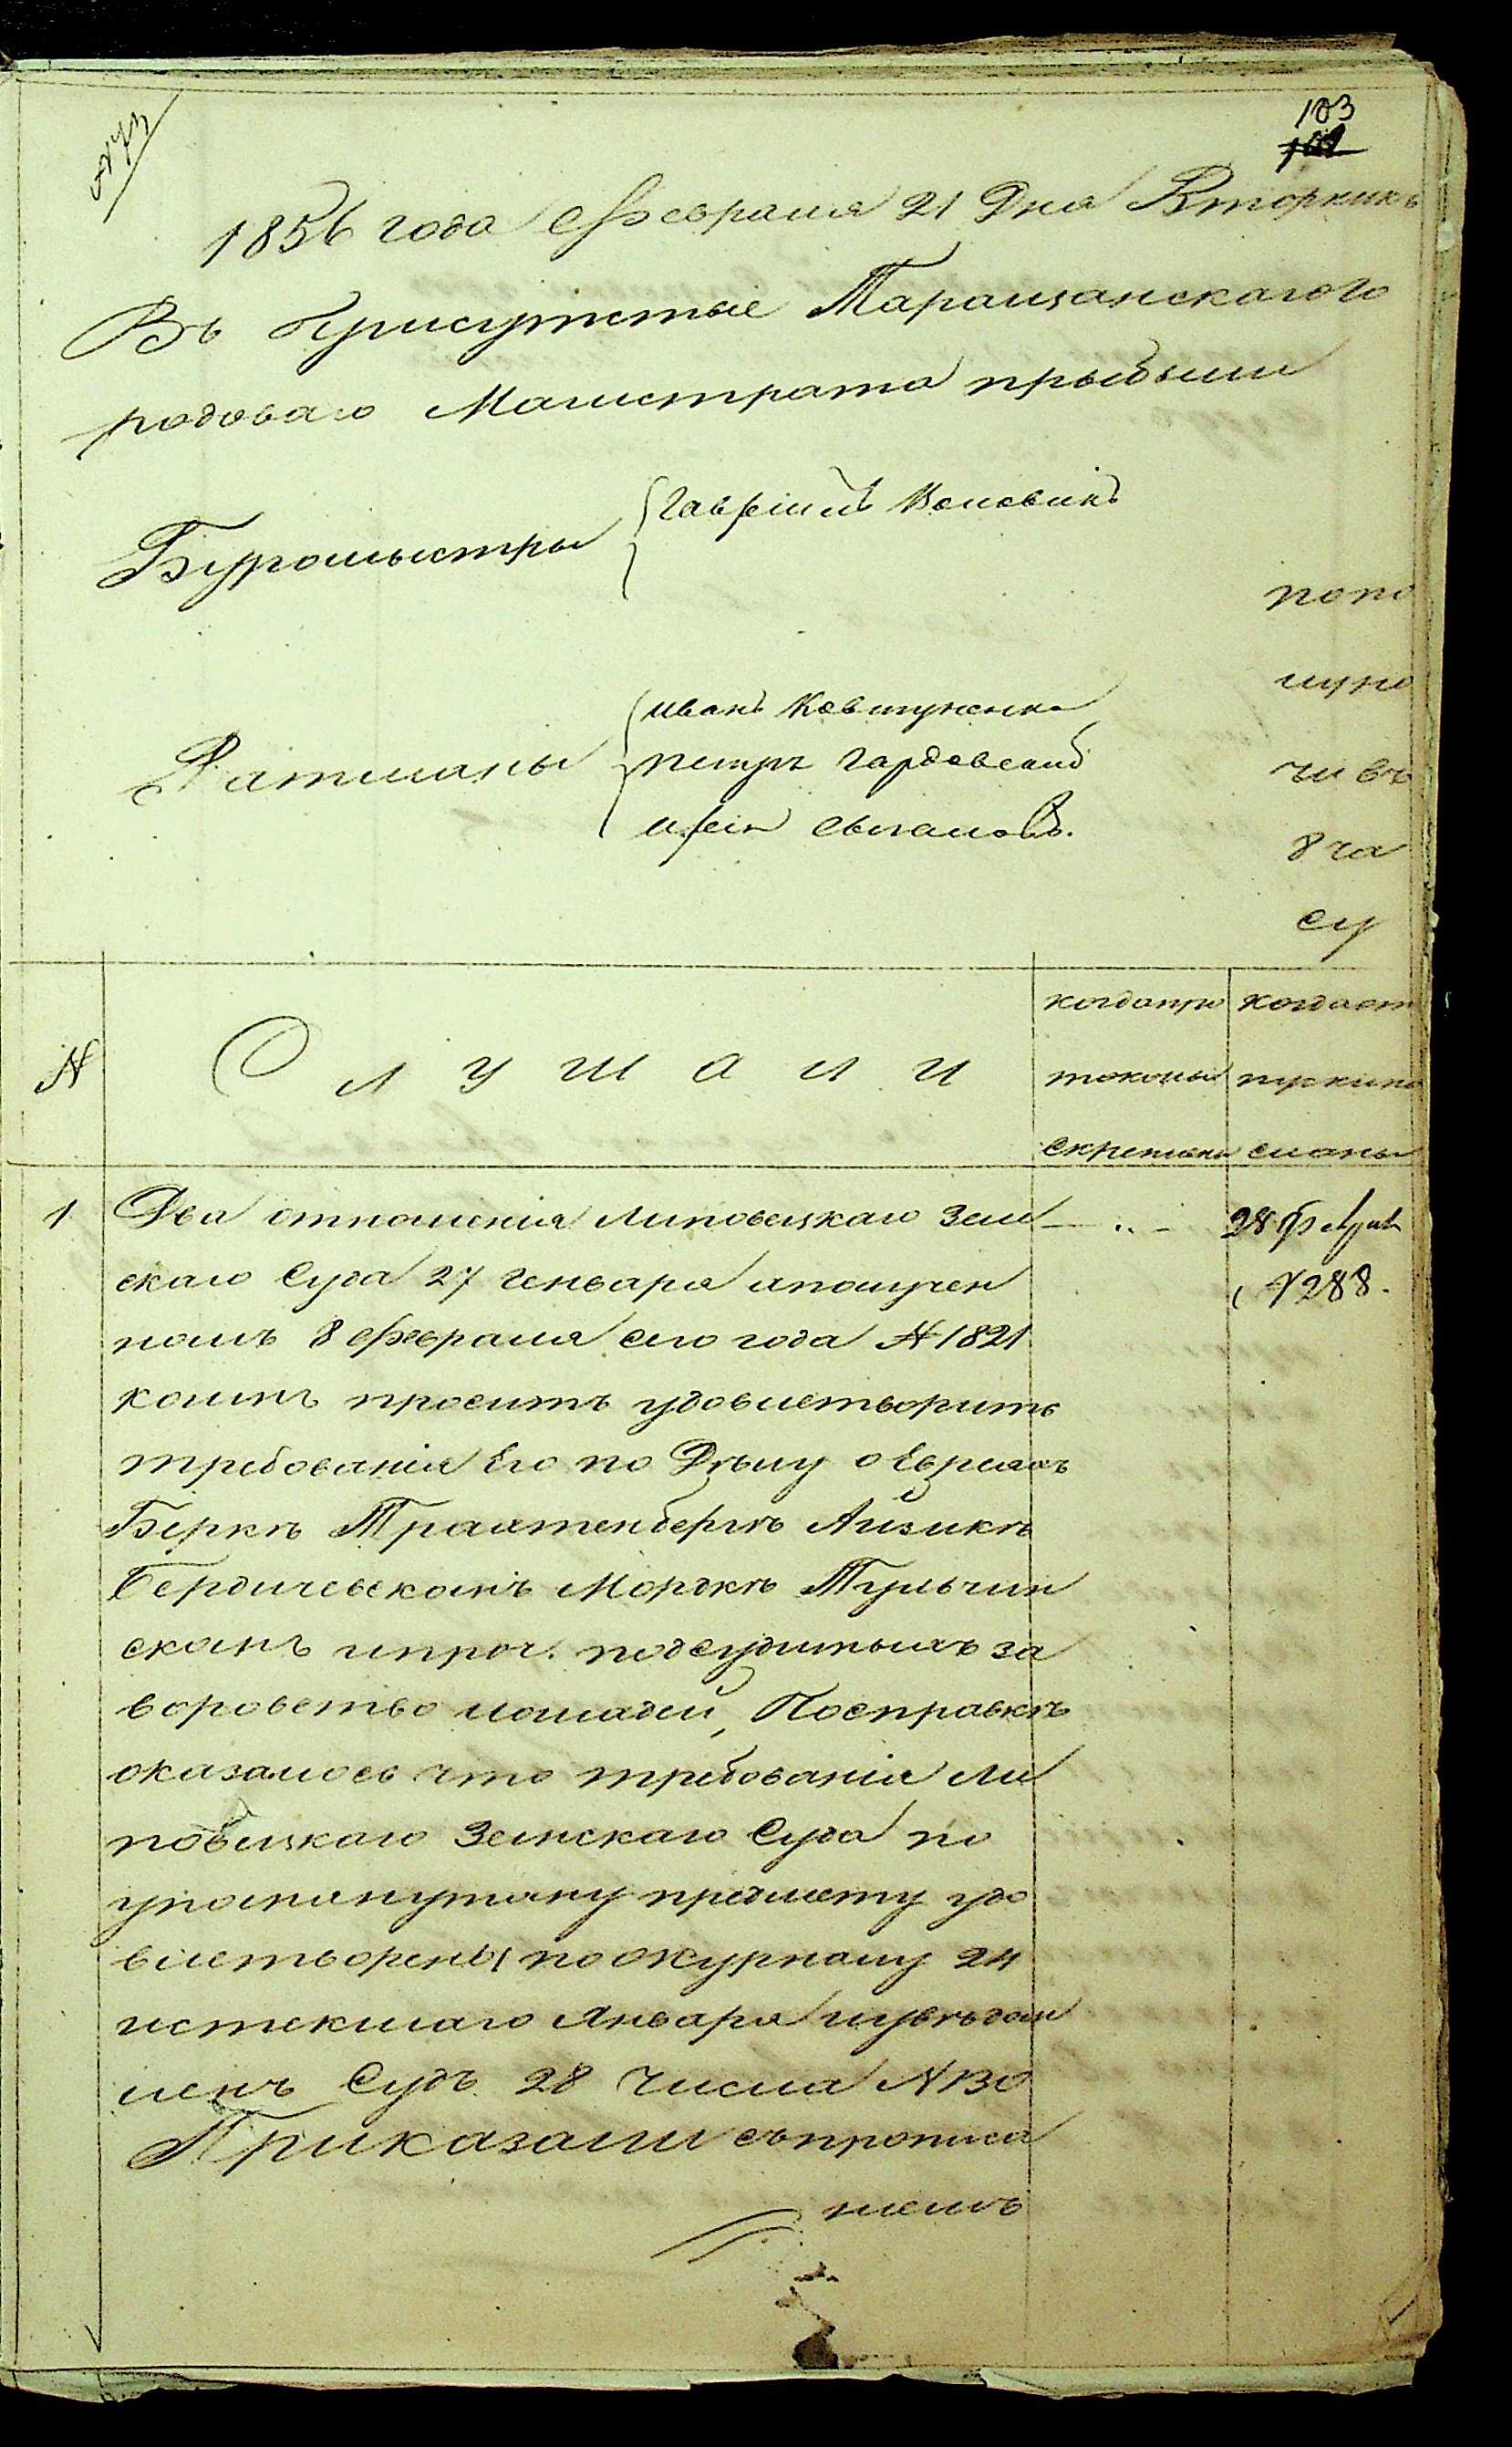 103
1856 года Февраля 21 Дня Вторникъ
Въ Присутствіе Таращанскаго Го
родоваго Магистрата прыбыли
Бургомыстры
Гавріилъ Воловикъ
попо
Ратманы
Иванъ Ковтуненко
Петръ Гардовский
луно
чи въ
8 ча
су
N
Слушали
когда про
токолы
скреплены
когда от
пуски по
сланы
1 Два отношенія Липовецкаго Зем
скаго Суда 27 Генваря и получен
номъ 8 Февраля сего года № 1821
коимъ проситъ удовлетворить
требованія Его по Дѣлу о Евреяхъ
Беркѣ Трахтенбергѣ Айзикѣ
Бердичевскомъ Моркѣ Тульчин
скомъ и проч. подсудимыхъ за
воровство лошадей, По справкѣ
оказалось что требованія Ли
повецкаго Земскаго Суда по
упомянутому предмету удо
влетворены по Журналу 24
истекшаго Января и увѣдом
ленъ Судъ 28 Числа № 130
Приказали съ прописа
ніемъ
28 Февраля
№ 288.